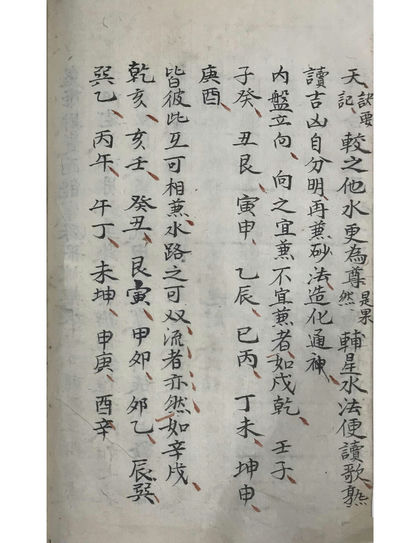 天訣要記、較之他水更為尊是果然、輔星水法便讀歌熟
讀吉凶自分明再兼砂法造化通神、
內盤立向、向之宜兼不宜兼者、如戌乾、壬子、
子癸、丑艮、寅申、乙辰、巳丙、丁未、坤申、
庚酉、
皆彼此互可相兼、水路之可双流者亦然、如辛戌、
乾亥、亥壬、癸丑、艮寅、甲卯、卯乙、辰巽、
巽乙、丙午、午丁、未坤、申庚、酉辛、